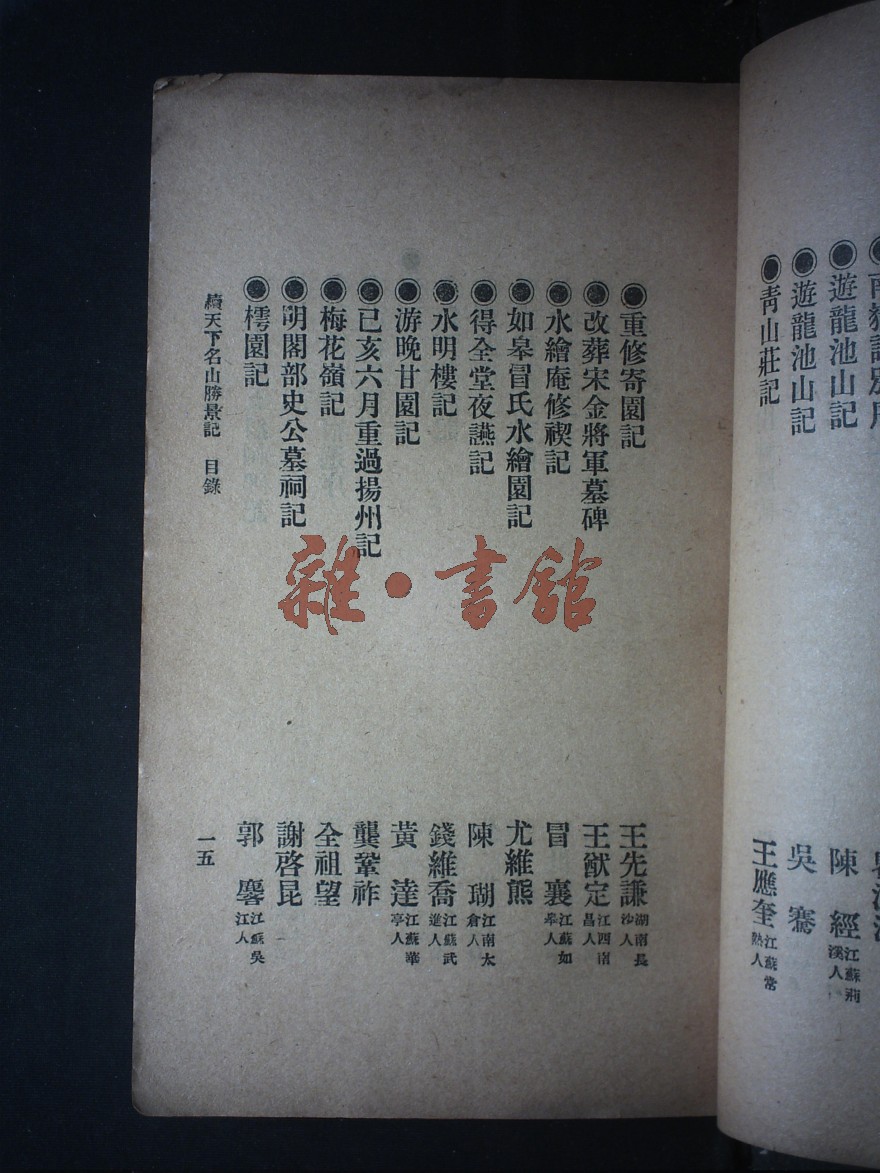 遊龍池山記
陳經 江蘇荊溪人
遊龍池山記
吳騫
青山莊記
王應奎 江蘇常熟人
重修寄園記
王先謙 湖南長沙人
改葬宋金將軍墓碑
王猷定 江西南昌人
水繪庵修禊記
冒襄 江蘇如臯人
如皋冒氏水繪園記
尤維熊
得全堂夜讌記
陳瑚 江南太倉人
水明樓記
錢維喬 江蘇武進人
游晚甘園記
黃達 江蘇華亭人
己亥六月重過揚州記
龔鞏祚
梅花嶺記
全祖望
明閣部史公墓祠記
謝啓昆
樗園記
郭麐 江蘇吳江人
續天下名山勝景記 目錄
一五
雜·書館